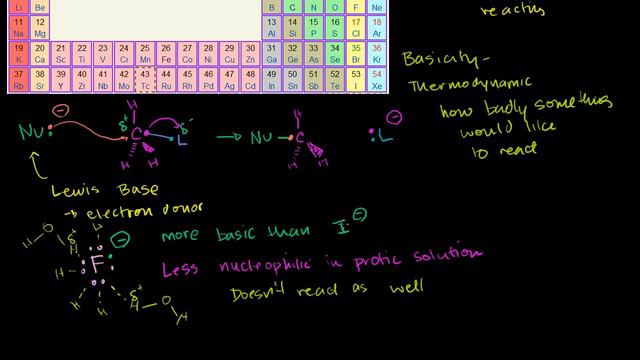 Li Be B C N O F Ne
11 12 13 14 15 16 17 18
Na Mg Al Si P S Cl Ar
19 20 21 22 23 24 25 26 27 28 29 30 31 32 33 34 35 36
K Ca Sc Ti V Cr Mn Fe Co Ni Cu Zn Ga Ge As Se Br Kr
37 38 39 40 41 42 43 44 45 46 47 48 49 50 51 52 53 54
Rb Sr Y Zr Nb Mo Tc Ru Rh Pd Ag Cd In Sn Sb Te I Xe
Basicity-
Thermodynamic
how badly something
would like
to react
Nu: − H δ+ C H H δ− L → Nu C H H H :L −
Lewis Base
→ electron donor
H O δ+ H H
F −
H H H δ+ H O H
more basic than I −
Less nucleophilic in protic solution
Doesn't react as well